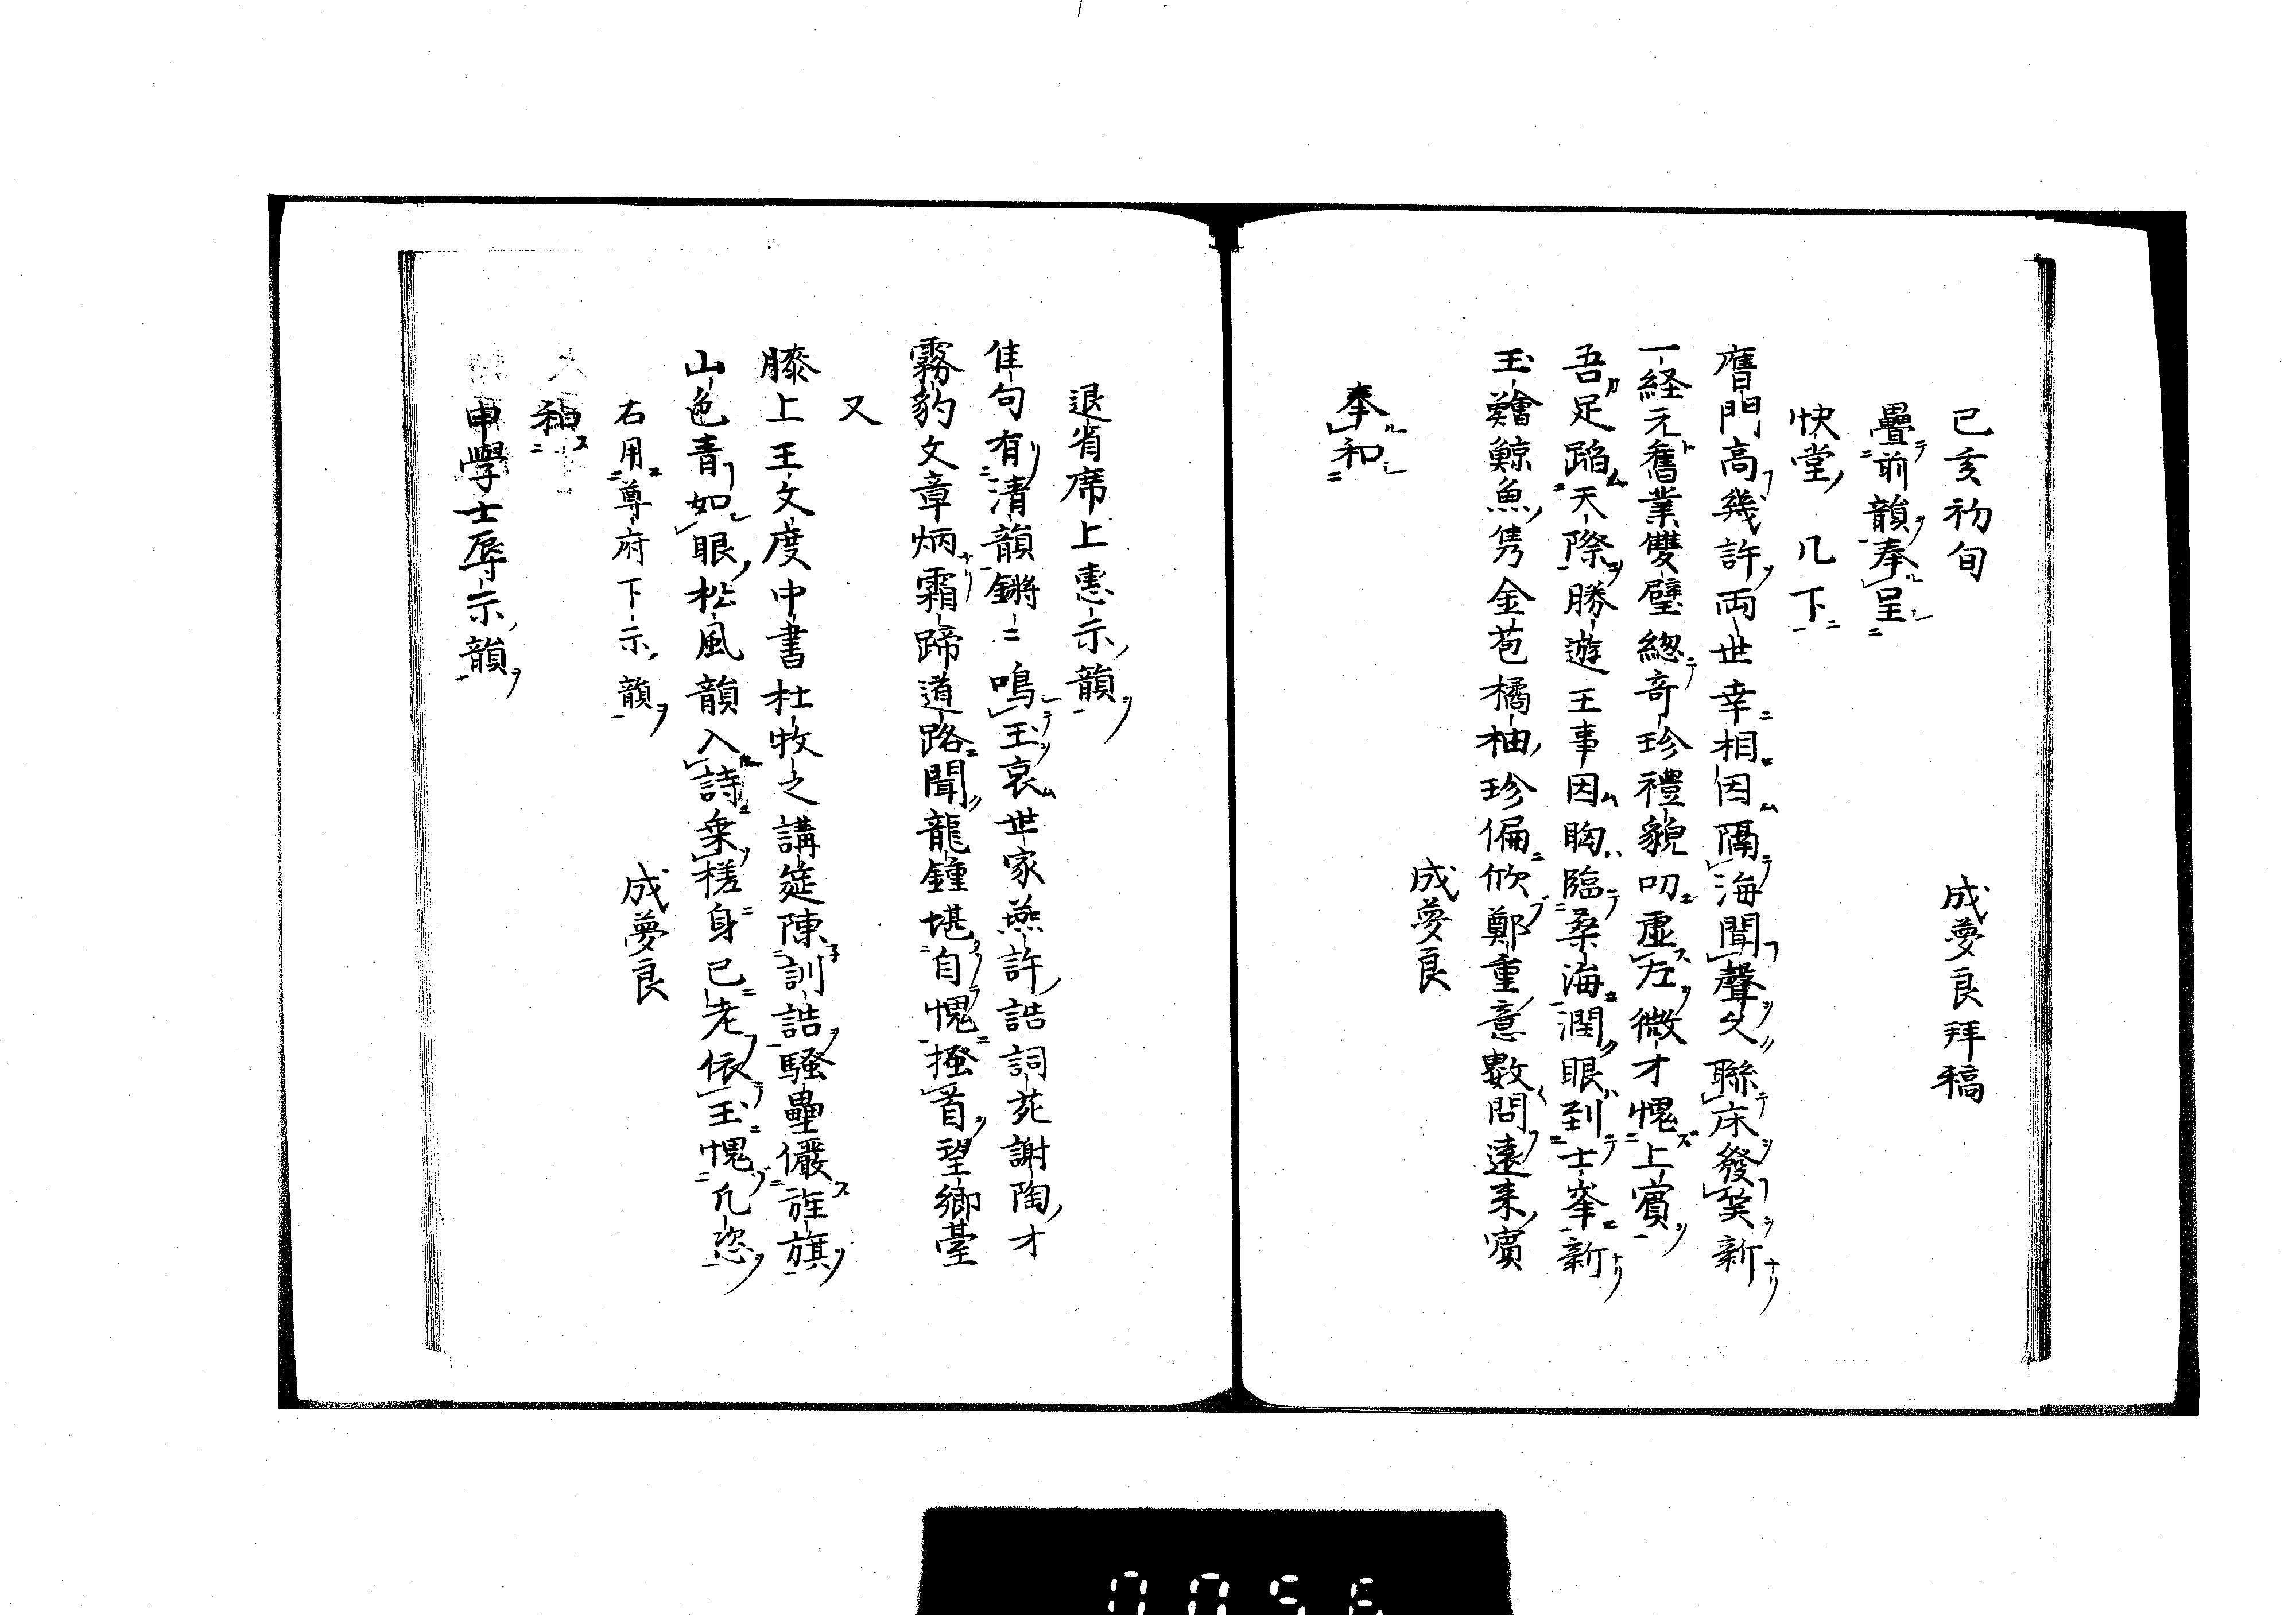 己亥初旬　成夢良拜稿
疊前韻奉呈
快堂几下
膺門高幾許両世幸相因隔海聞聲久聯床發笑新
一経元舊業雙璧總奇珍禮貌叨虛左微才愧上賓
吾足蹈天際勝遊王事因胸臨桑海潤眼到士峯新
玉鱠鯨魚雋金苞橘柚珍偏欣鄭重意數問遠來賓
成夢良
奉和
退省席上惠示韻
佳句有清韻鏘〻鳴玉哀世家燕許誥詞苑謝陶才
霧豹文章炳霜蹄道路聞龍鐘堪自愧搔首望鄉臺
又
膝上王文度中書杜牧之講筵陳訓誥騷壘儼旌旗
山色青如眼松風韻入詩乗槎身已老依玉愧凡姿
右用尊府下示韻
成夢良
和
申學士辱示韻
0056